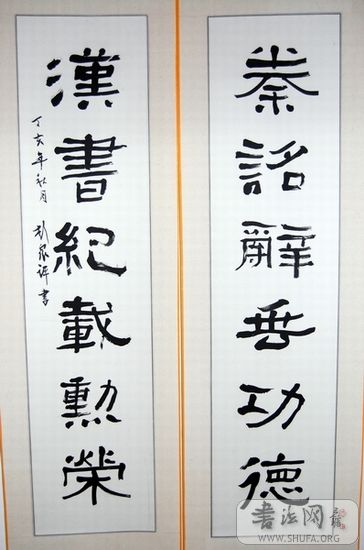 秦銘辭垂功德
漢書紀載勳榮
丁亥年秋月
書
书法网
WWW.SHUFA.ORG